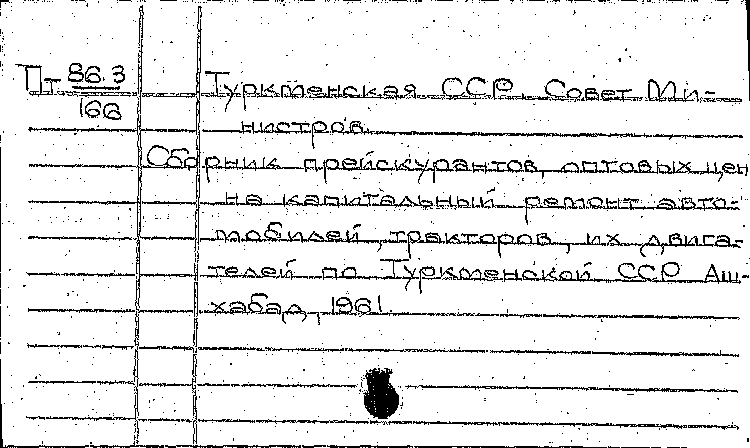 Пт 86.3
166
Туркменская ССР. Совет Ми-
нистров.
Сборник прейскурантов, оптовых цен
на капитальный ремонт авто-
мобилей, тракторов, их двига-
телей по Туркменской ССР Аш-
хабад, 1961.